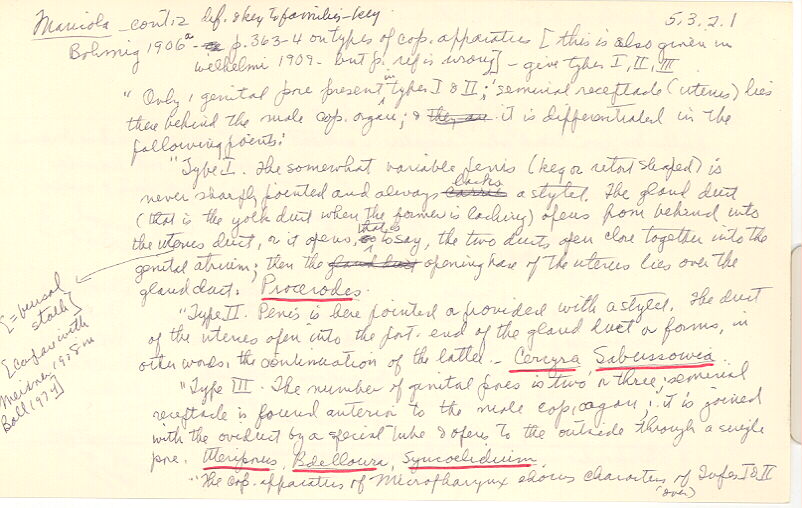 Maricola - cont. 2 def. & key to families - key 5.3.2.1
Böhmig 1906a - p. 363-4 on types of cop. apparatus [this is also given in
Wilhelmi 1909 - but p. ref is wrong] - give types I, II, III
"Only 1 genital pore present in types I & II; seminal receptacle (uterus) lies
there behind the male cop. organ; & they are it is differentiated in the
following points:
"Type I. The somewhat variable penis (keg or retort shaped) is
never sharply pointed and always carries lacks a stylet. The gland duct
(that is the yolk duct when the former is lacking) opens from behind into
the uterus duct, or it opens, so that is to say, the two ducts open close together into the
genital atrium; then the gland duct opening here of the uterus lies over the
gland duct. Procerodes.
[= bursal
stalk]
[compare with
Meixner 1928 in
Ball 1973]
"Type II. Penis is here pointed or provided with a stylet. The duct
of the uterus opens into the post. end of the gland duct or forms, in
other words, the continuation of the latter. - Cercyra, Sabussowia.
"Type III. The number of genital pores is two or three; seminal
receptacle is found anterior to the male cop. organ; it is joined
with the oviduct by a special tube & opens to the outside through a single
pore. Uteriporus, Bdelloura, Syncoelidium
"The cop. apparatus of Micropharynx shows characters of Types I & II
(over)